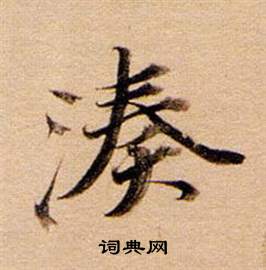 湊
词典网